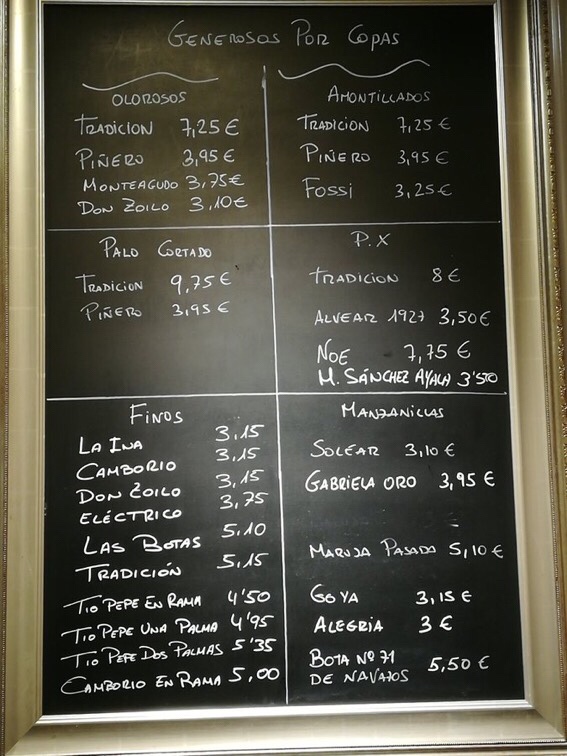 GENEROSOS POR COPAS
OLOROSOS
TRADICION 7,25 €
PIÑERO 3,95 €
MONTEAGUDO 3,75 €
DON ZOILO 3,10 €
AMONTILLADOS
TRADICION 7,25 €
PIÑERO 3,95 €
FOSSI 3,25 €
PALO CORTADO
TRADICION 9,75 €
PIÑERO 3,95 €
P.X
TRADICION 8 €
ALVEAR 1927 3,50 €
NOE 7,75 €
M. SÁNCHEZ AYALA 3'5TO
FINOS
LA INA 3,15
CAMBORIO 3,15
DON ZOILO 3,15
ELÉCTRICO 3,75
LAS BOTAS 5,10
TRADICIÓN 5,15
TIO PEPE EN RAMA 4'50
TIO PEPE UNA PALMA 4'95
TIO PEPE DOS PALMAS 5'35
CAMBORIO EN RAMA 5,00
MANZANILLAS
SOLEAR 3,10 €
GABRIELA ORO 3,95 €
MARUJA PASADA 5,10 €
GOYA 3,15 €
ALEGRIA 3 €
BOTA Nº 71 5,50 €
DE NAVAJOS